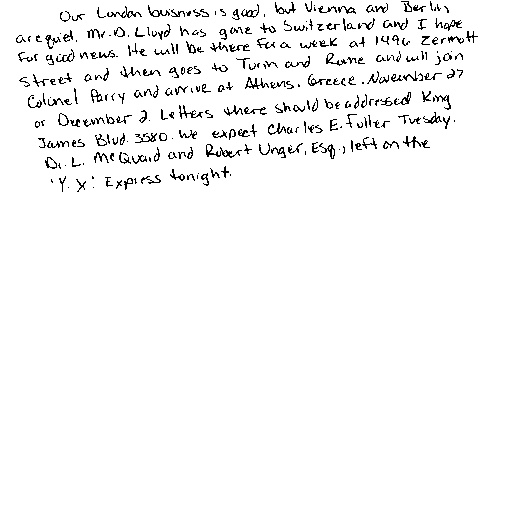 Our London buisness is good, but Vienna and Berlin
are quiet. Mr. D. Lloyd has gone to Switzerland and I hope
for good news. He will be there for a week at 1496 Zermott
Street and then goes to Turin and Rome and will join
Colonel Parry and arrive at Athens, Greece, November 27
or December 2. Letters there should be addressed King
James Blvd. 3580. We expect Charles E. Fuller Tuesday.
Dr. L. McQuaid and Robert Unger, Esq., left on the
'Y.X.' Express tonight.